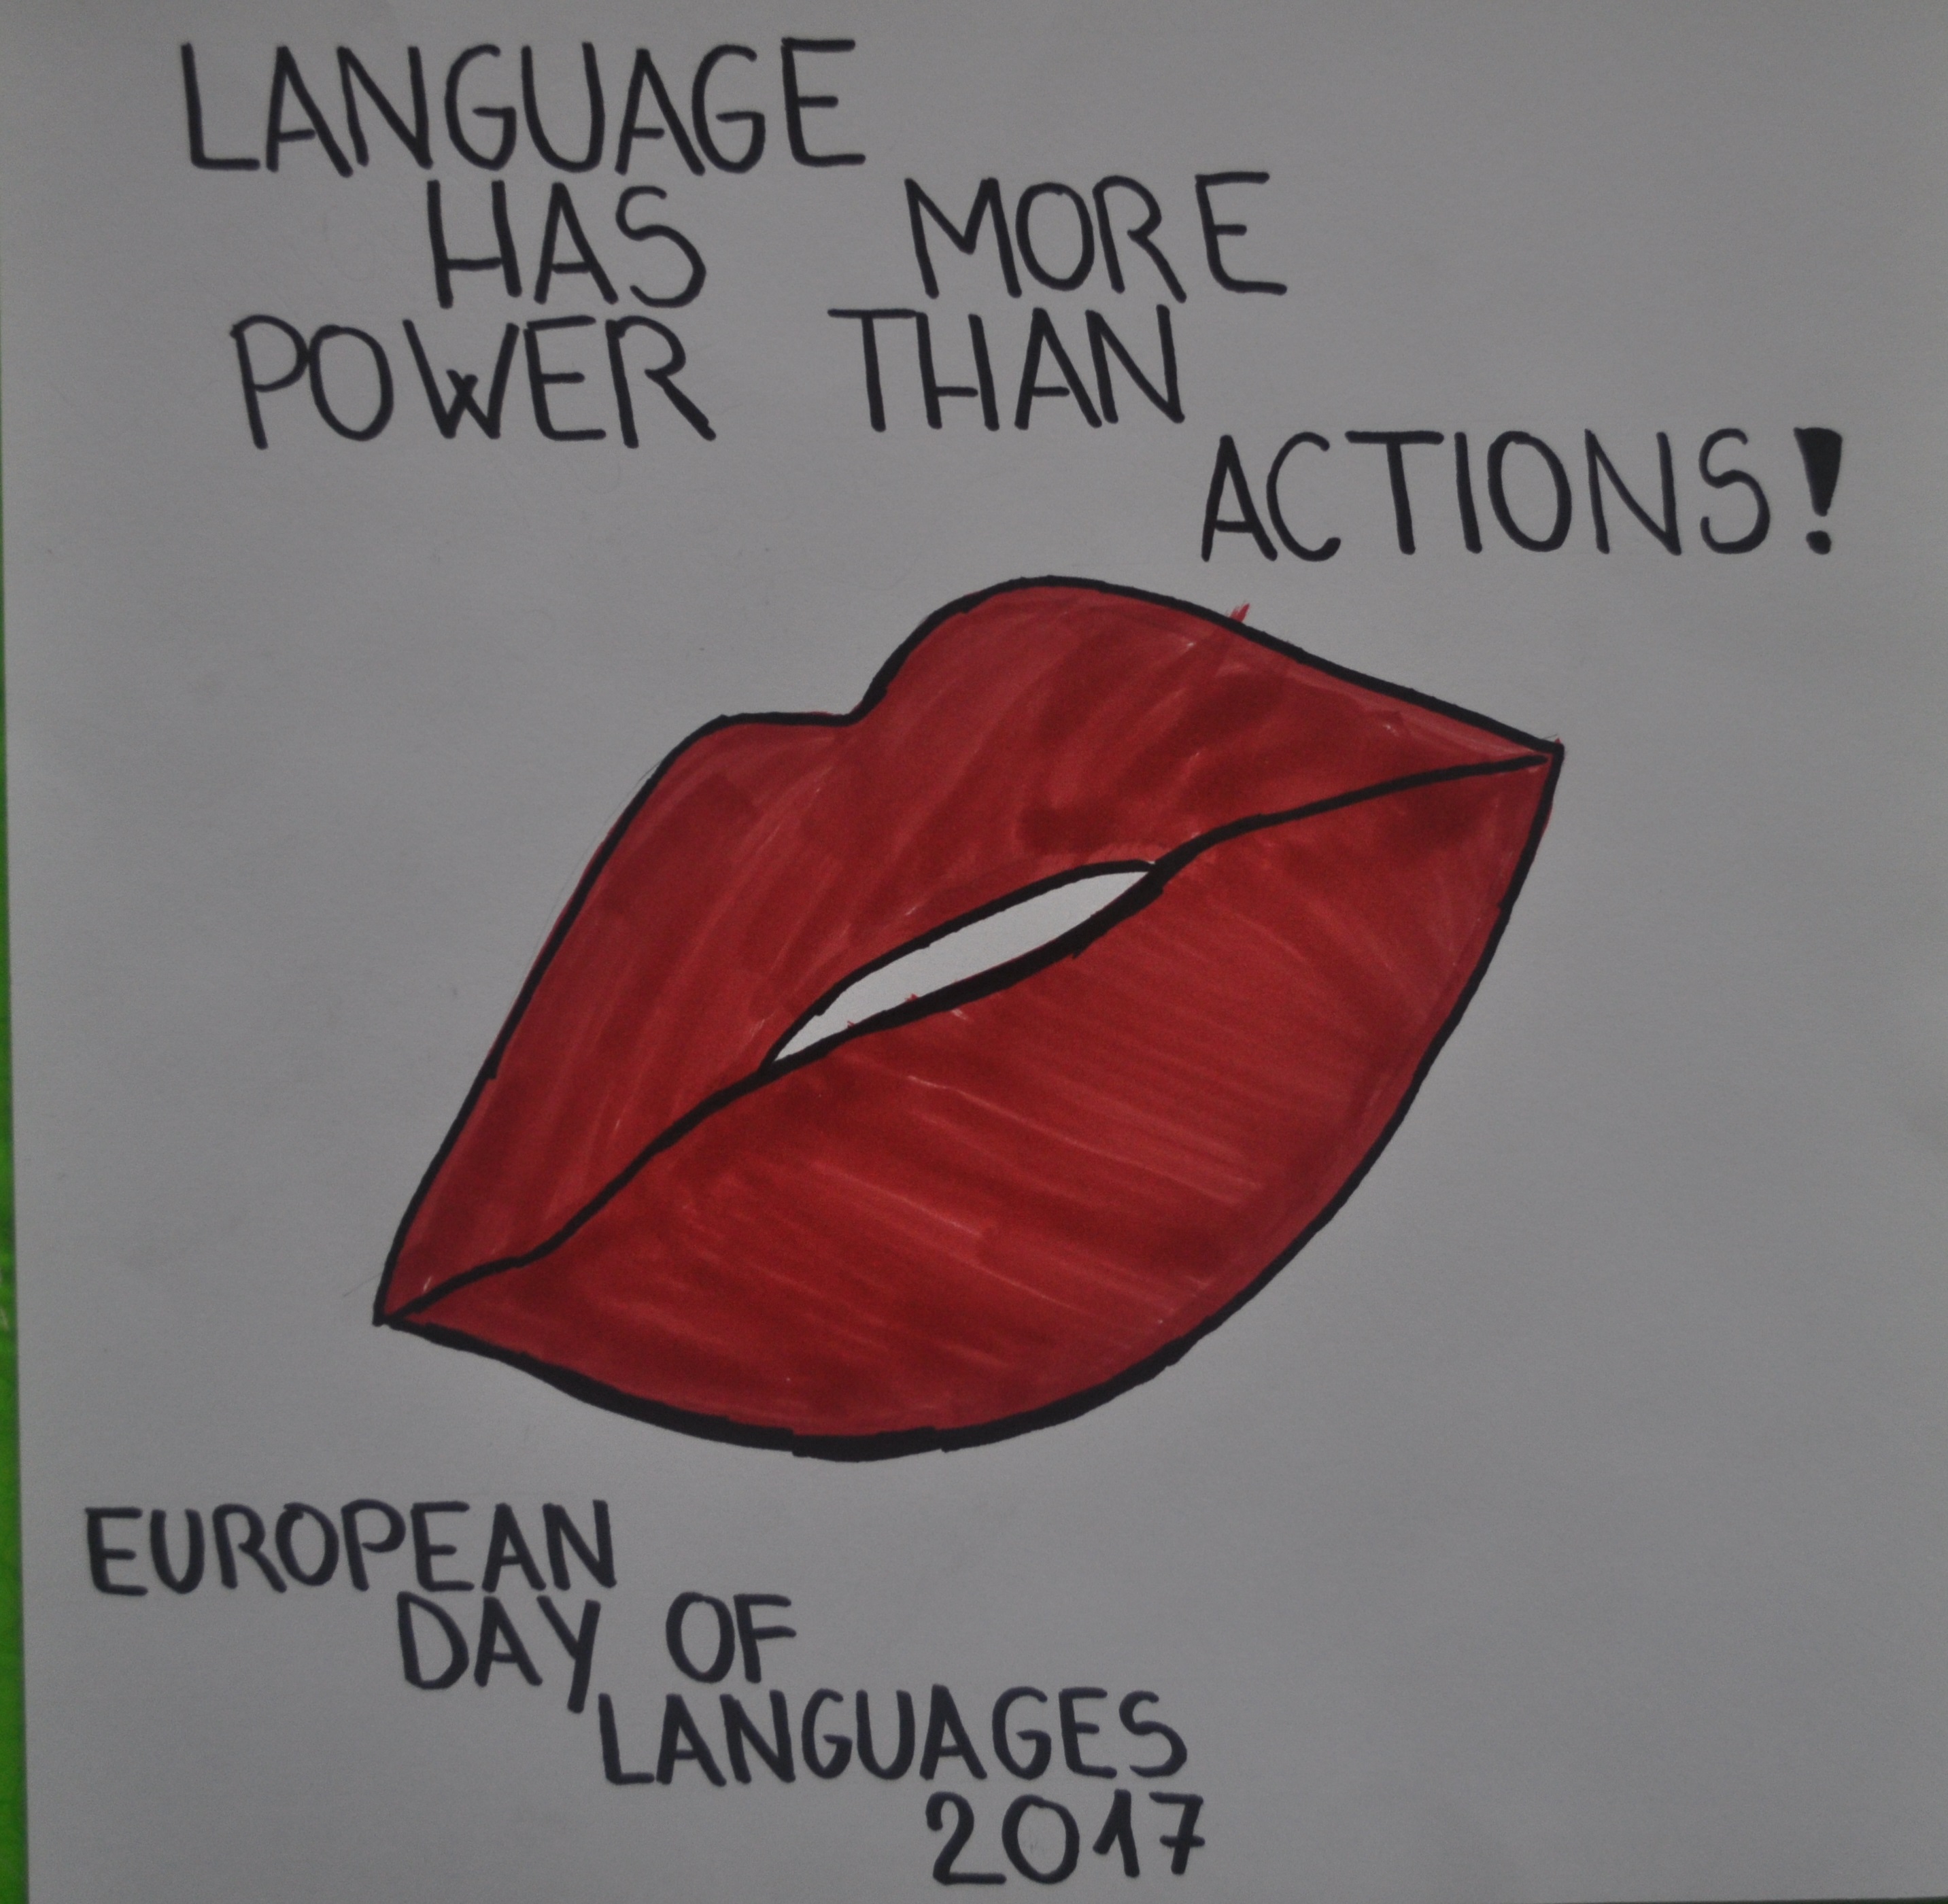 LANGUAGE
HAS MORE
POWER THAN
ACTIONS!
EUROPEAN
DAY OF
LANGUAGES
2017